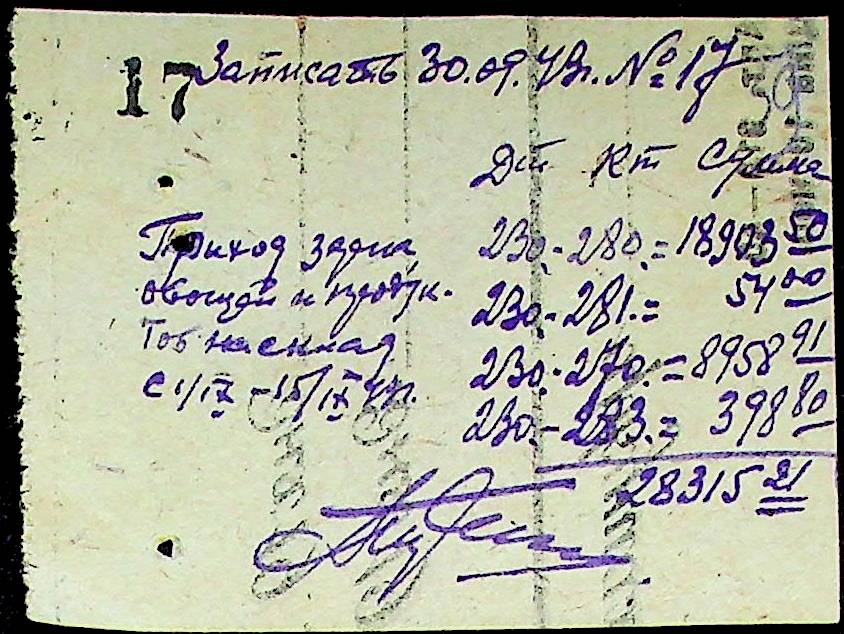 17 Записать 30.09.43г. № 17
Дт Кт Сумма
Приход зерна, 230.-280.= 18903 50
овощей и продук- 230.-281.= 54 00
тов на склад 230.-270.= 8958 91
с 1/IX - 15/IX 43г. 230.-283.= 398 80
28315 21